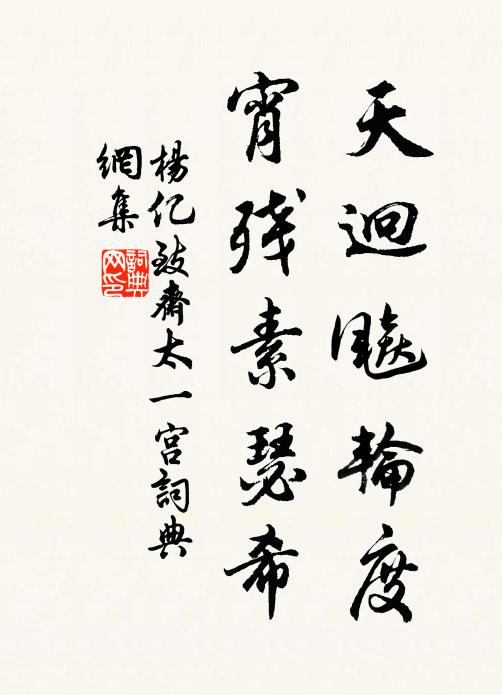 天迴飈輪度
宵殘素瑟希
楊億致齋太一宮詞典
網集
詞典
网印